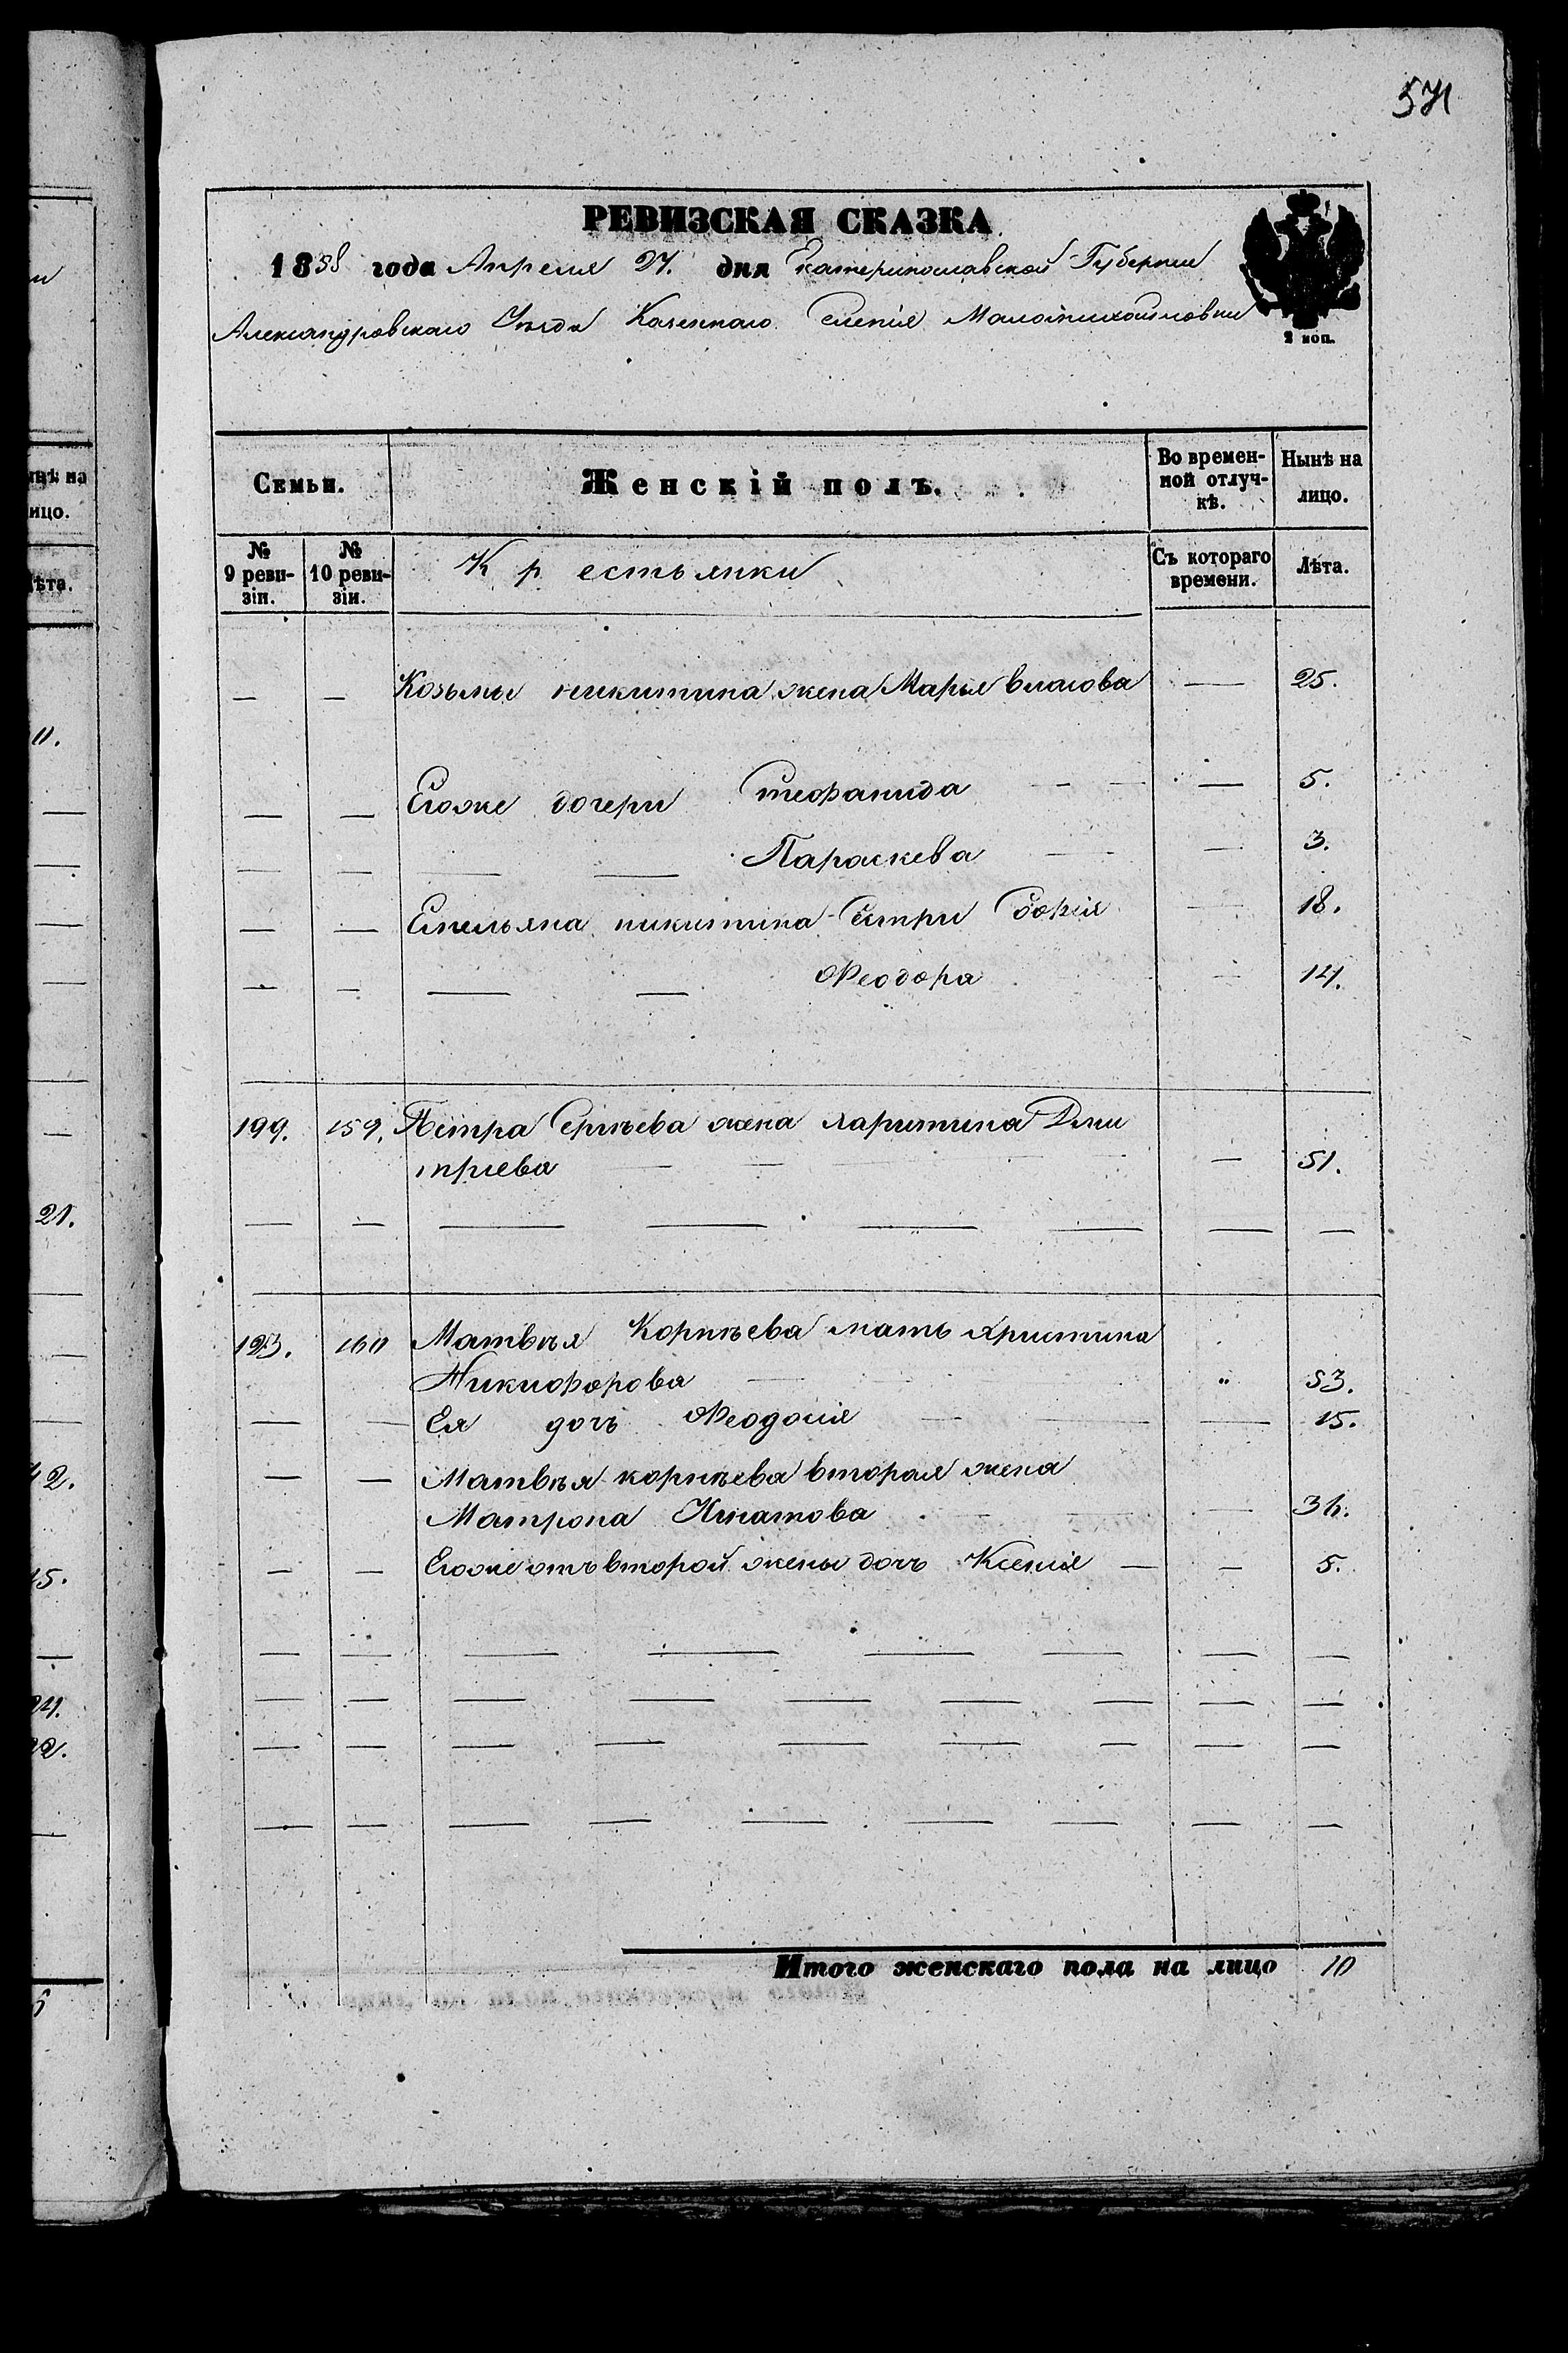 571
РЕВИЗСКАЯ СКАЗКА
1858 года Апреля 27. дня Екатеринославской Губернии
Александровскаго Уезда Казеннаго Селенiя Маломихайловки
2 коп.
Семьи. Женскiй полъ. Во времен-ной отлуч-кѣ. Нынѣ на лицо.
№ 9 реви-зiи. № 10 реви-зiи. Крестьянки Съ котораго времени. Лѣта.
— — Козьмы никитина жена Марья власова — 25.
— — Егоже дочери Стефанида — — — 5.
— — — — Параскева — — 3.
— — Емельяна никитина Сестри Софiя — 18.
— — — — Феодора — 14.
199. 159. Петра Сергѣева жена харитина Дми
трiева — — — — 51.
123. 160 Матвѣя Корнѣева мать христина
Никифорова — „ 53.
— — Ея дочъ Феодосiя — — — 15.
— — Матвѣя корнѣева вторая жена
Матрона Игнатова — — — 34.
— — Егоже отъ второй жены дочъ Ксенiя — — 5.
Итого женскаго пола на лицо 10
нѣ на
ицо.
ѣта.
0.
21.
42.
45.
24.
22.
6